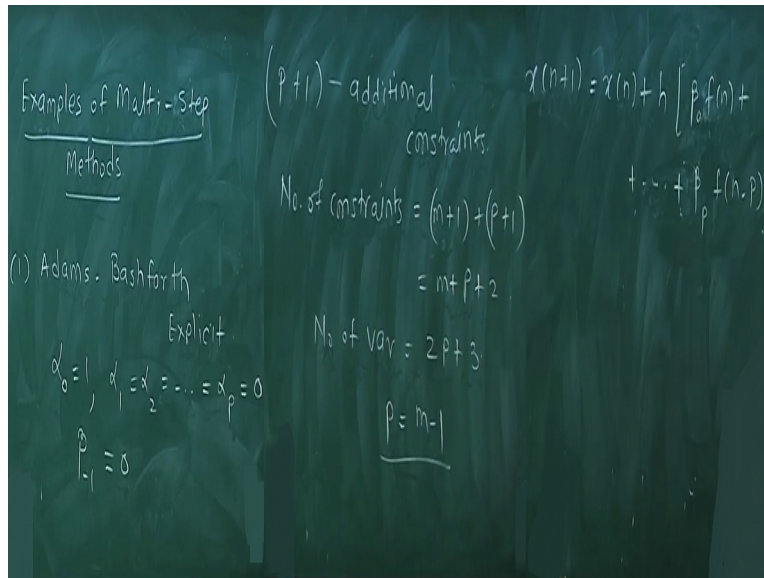 Examples of Malti-Step
Methods
(1) Adams-Bashforth
Explicit
α₀ = 1, α₁ = α₂ = ... = αₚ = 0
β₋₁ = 0
(P+1) - additional
constraints.
No. of constraints = (m+1) + (P+1)
= m+P+2
No of var = 2P+3.
P = m-1
x(n+1) = x(n) + h [β₀f(n) +
+ ... + βₚ f(n-P)